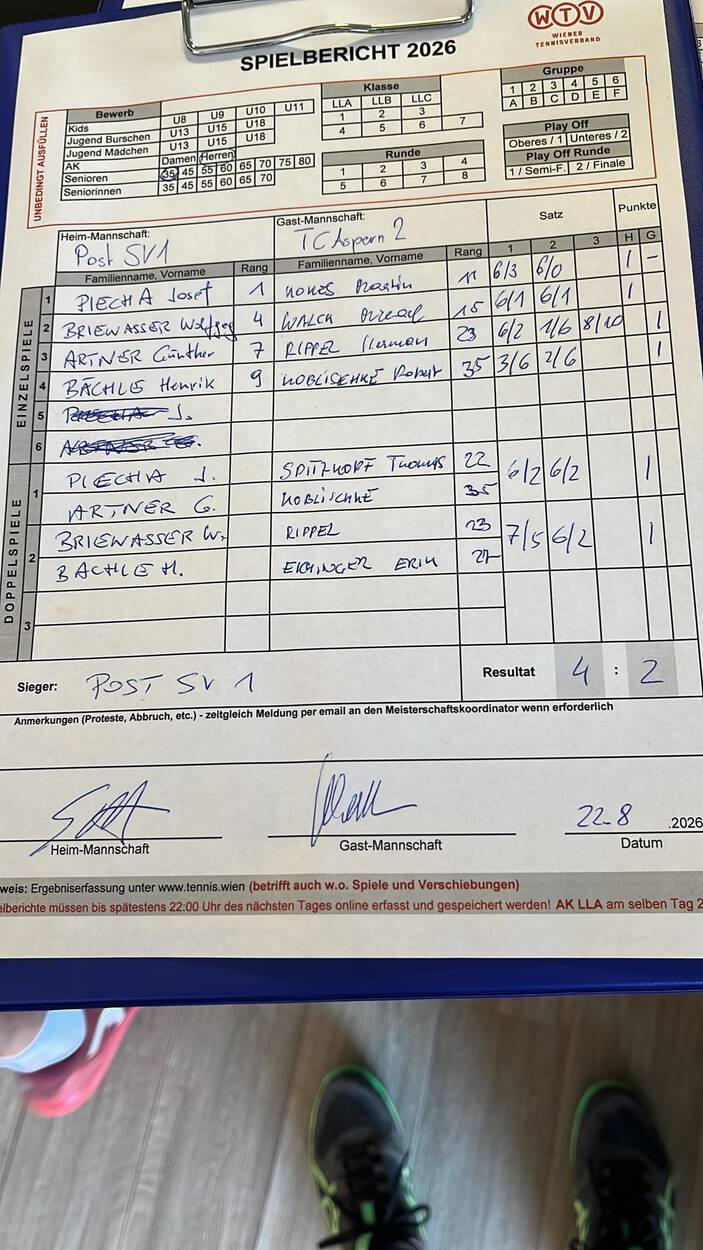 WTV
WIENER
TENNISVERBAND
SPIELBERICHT 2026
UNBEDINGT AUSFÜLLEN
Bewerb
Kids U8 U9 U10 U11
Jugend Burschen U13 U15 U18
Jugend Mädchen U13 U15 U18
AK Damen Herren
Senioren 35 45 55 60 65 70 75 80
Seniorinnen 35 45 55 60 65 70
Klasse
LLA LLB LLC
1 2 3
4 5 6 7
Runde
1 2 3 4
5 6 7 8
Gruppe
1 2 3 4 5 6
A B C D E F
Play Off
Oberes / 1 Unteres / 2
Play Off Runde
1 / Semi-F. 2 / Finale
Heim-Mannschaft: Post SV 1
Gast-Mannschaft: TC Aspern 2
Satz Punkte
Familienname, Vorname Rang Familienname, Vorname Rang 1 2 3 H G
EINZELSPIELE
1 PIECHA Josef 1 11 6/3 6/0 1 –
2 BRIEWASSER 4 WALCH 15 6/1 6/1 1
3 ARTNER Günther 7 RIPPEL 23 6/2 1/6 8/10 1
4 BÄCHLE Henrik 9 KOBLISCHKE Robert 35 3/6 2/6 1
5 J.
6
DOPPELSPIELE
1 PIECHA J. Thomas 22 6/2 6/2 1
ARTNER G. KOBLISCHKE 35
2 BRIEWASSER W. RIPPEL 23 7/5 6/2 1
BÄCHLE H. ERIK 27
3
Sieger: POST SV 1 Resultat 4 : 2
Anmerkungen (Proteste, Abbruch, etc.) - zeitgleich Meldung per email an den Meisterschaftskoordinator wenn erforderlich
22.8 .2026
Heim-Mannschaft Gast-Mannschaft Datum
weis: Ergebniserfassung unter www.tennis.wien (betrifft auch w.o. Spiele und Verschiebungen)
elberichte müssen bis spätestens 22:00 Uhr des nächsten Tages online erfasst und gespeichert werden! AK LLA am selben Tag 2